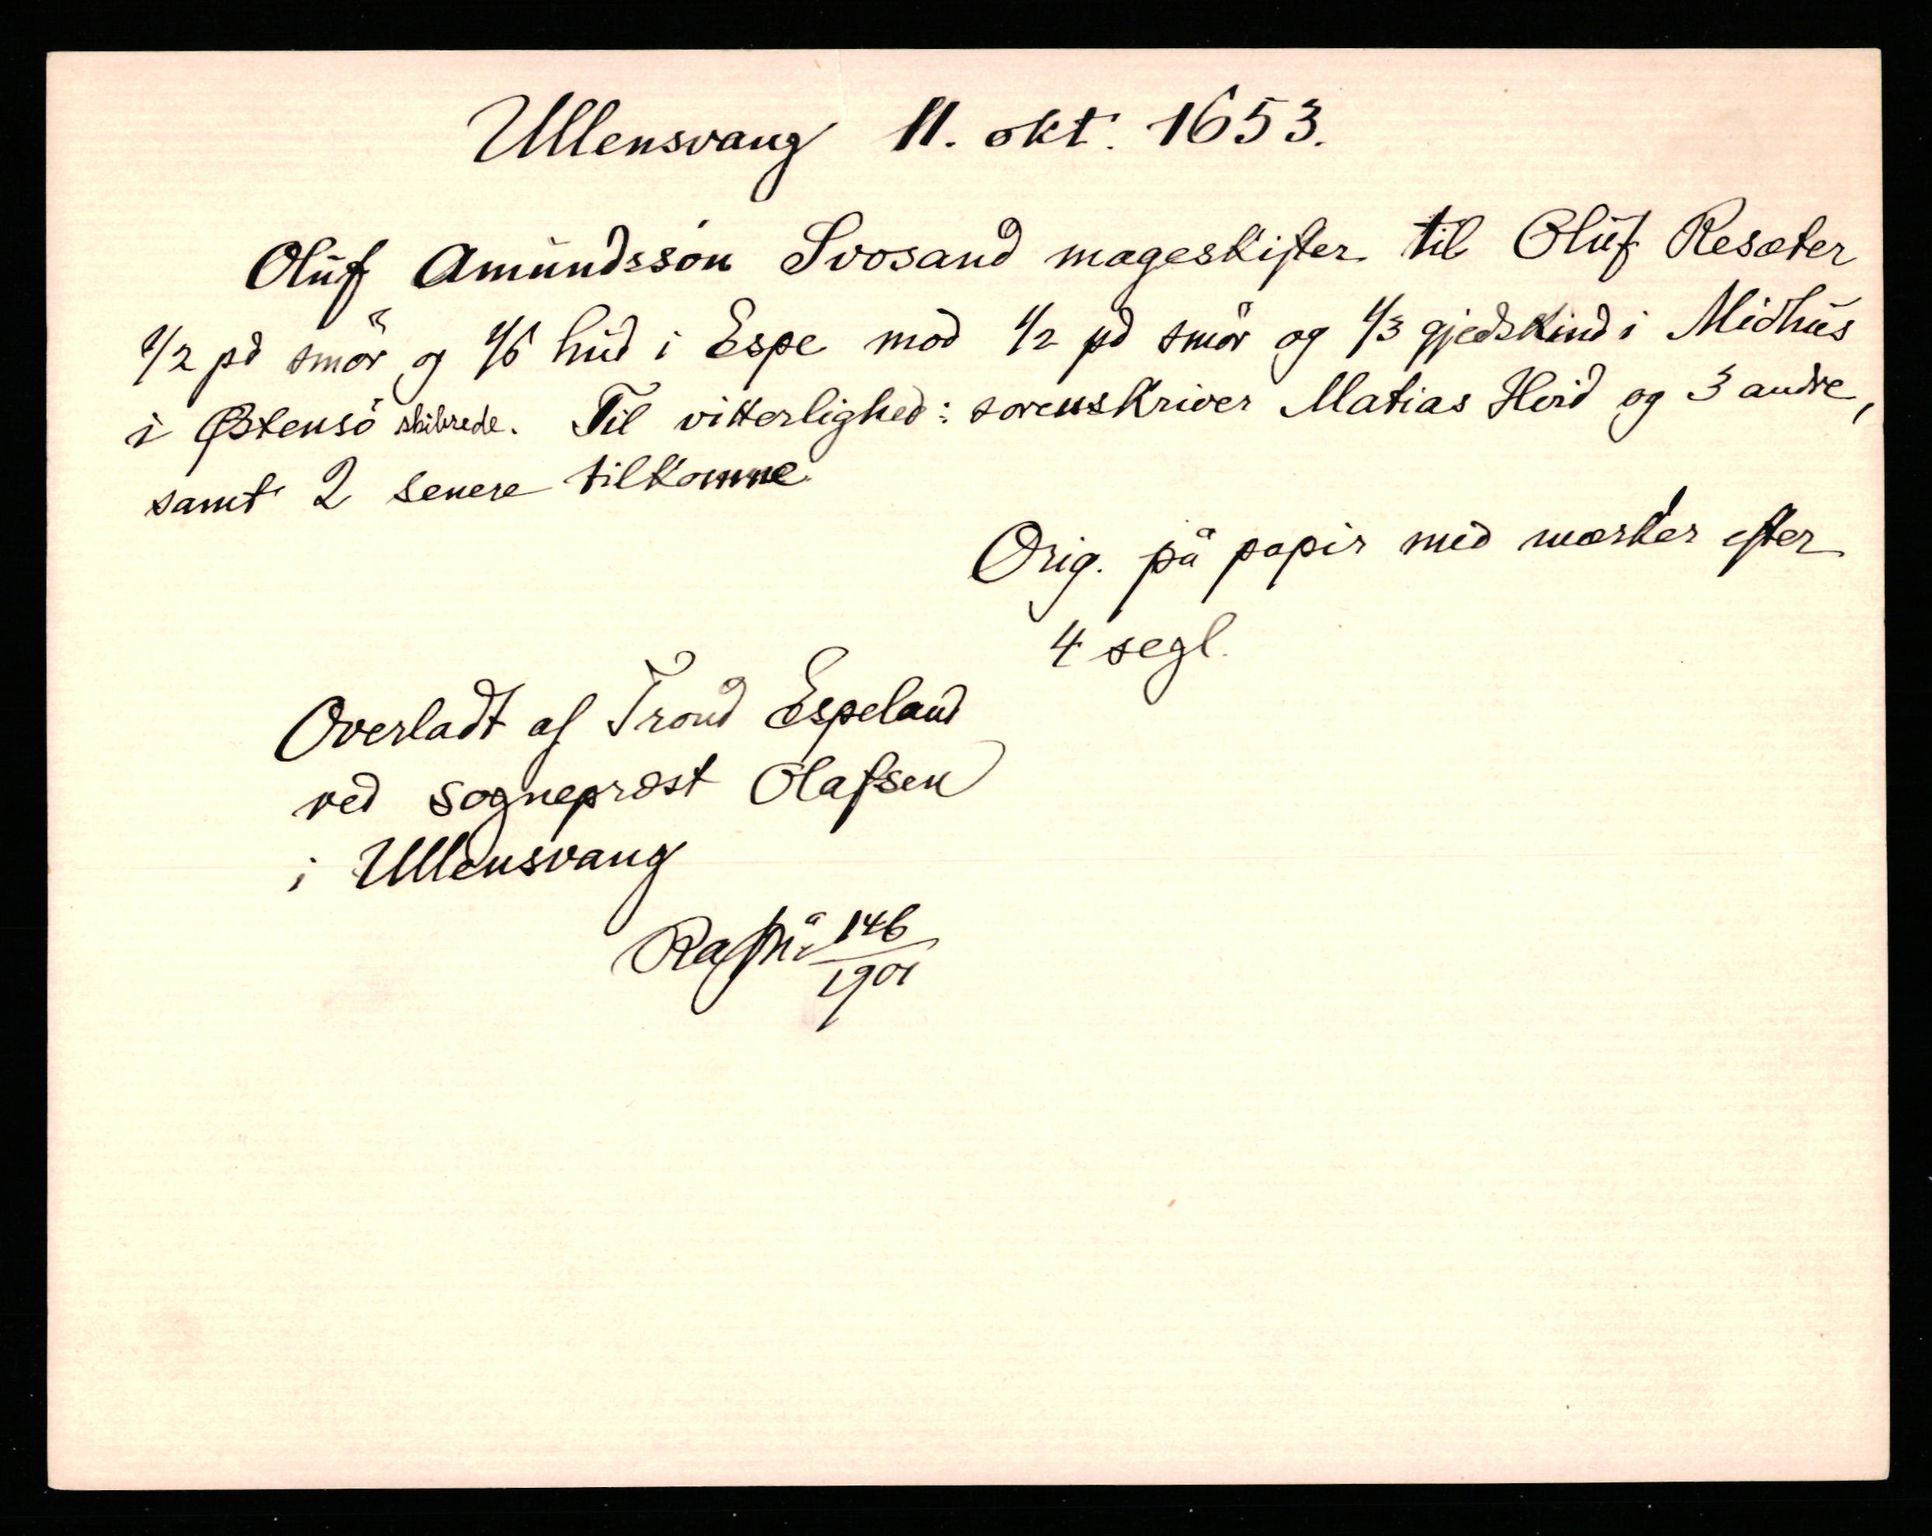 Ullensvang 11. okt. 1653.
Oluf Amundssøn Svosand mageskifter til Oluf Resæter
1/2 pd smör og 1/6 hud i Espe mod 1/2 pd smör og 1/3 gjedskind i Midhus
i Østensö skibrede. Til vitterlighed: sorenskriver Matias Hvid og 3 andre,
samt 2 senere tilkomne
Orig. på papir med mærker efter
4 segl.
Overladt af Trond Espeland
ved sogneprest Olafsen
i Ullensvang
146
1901